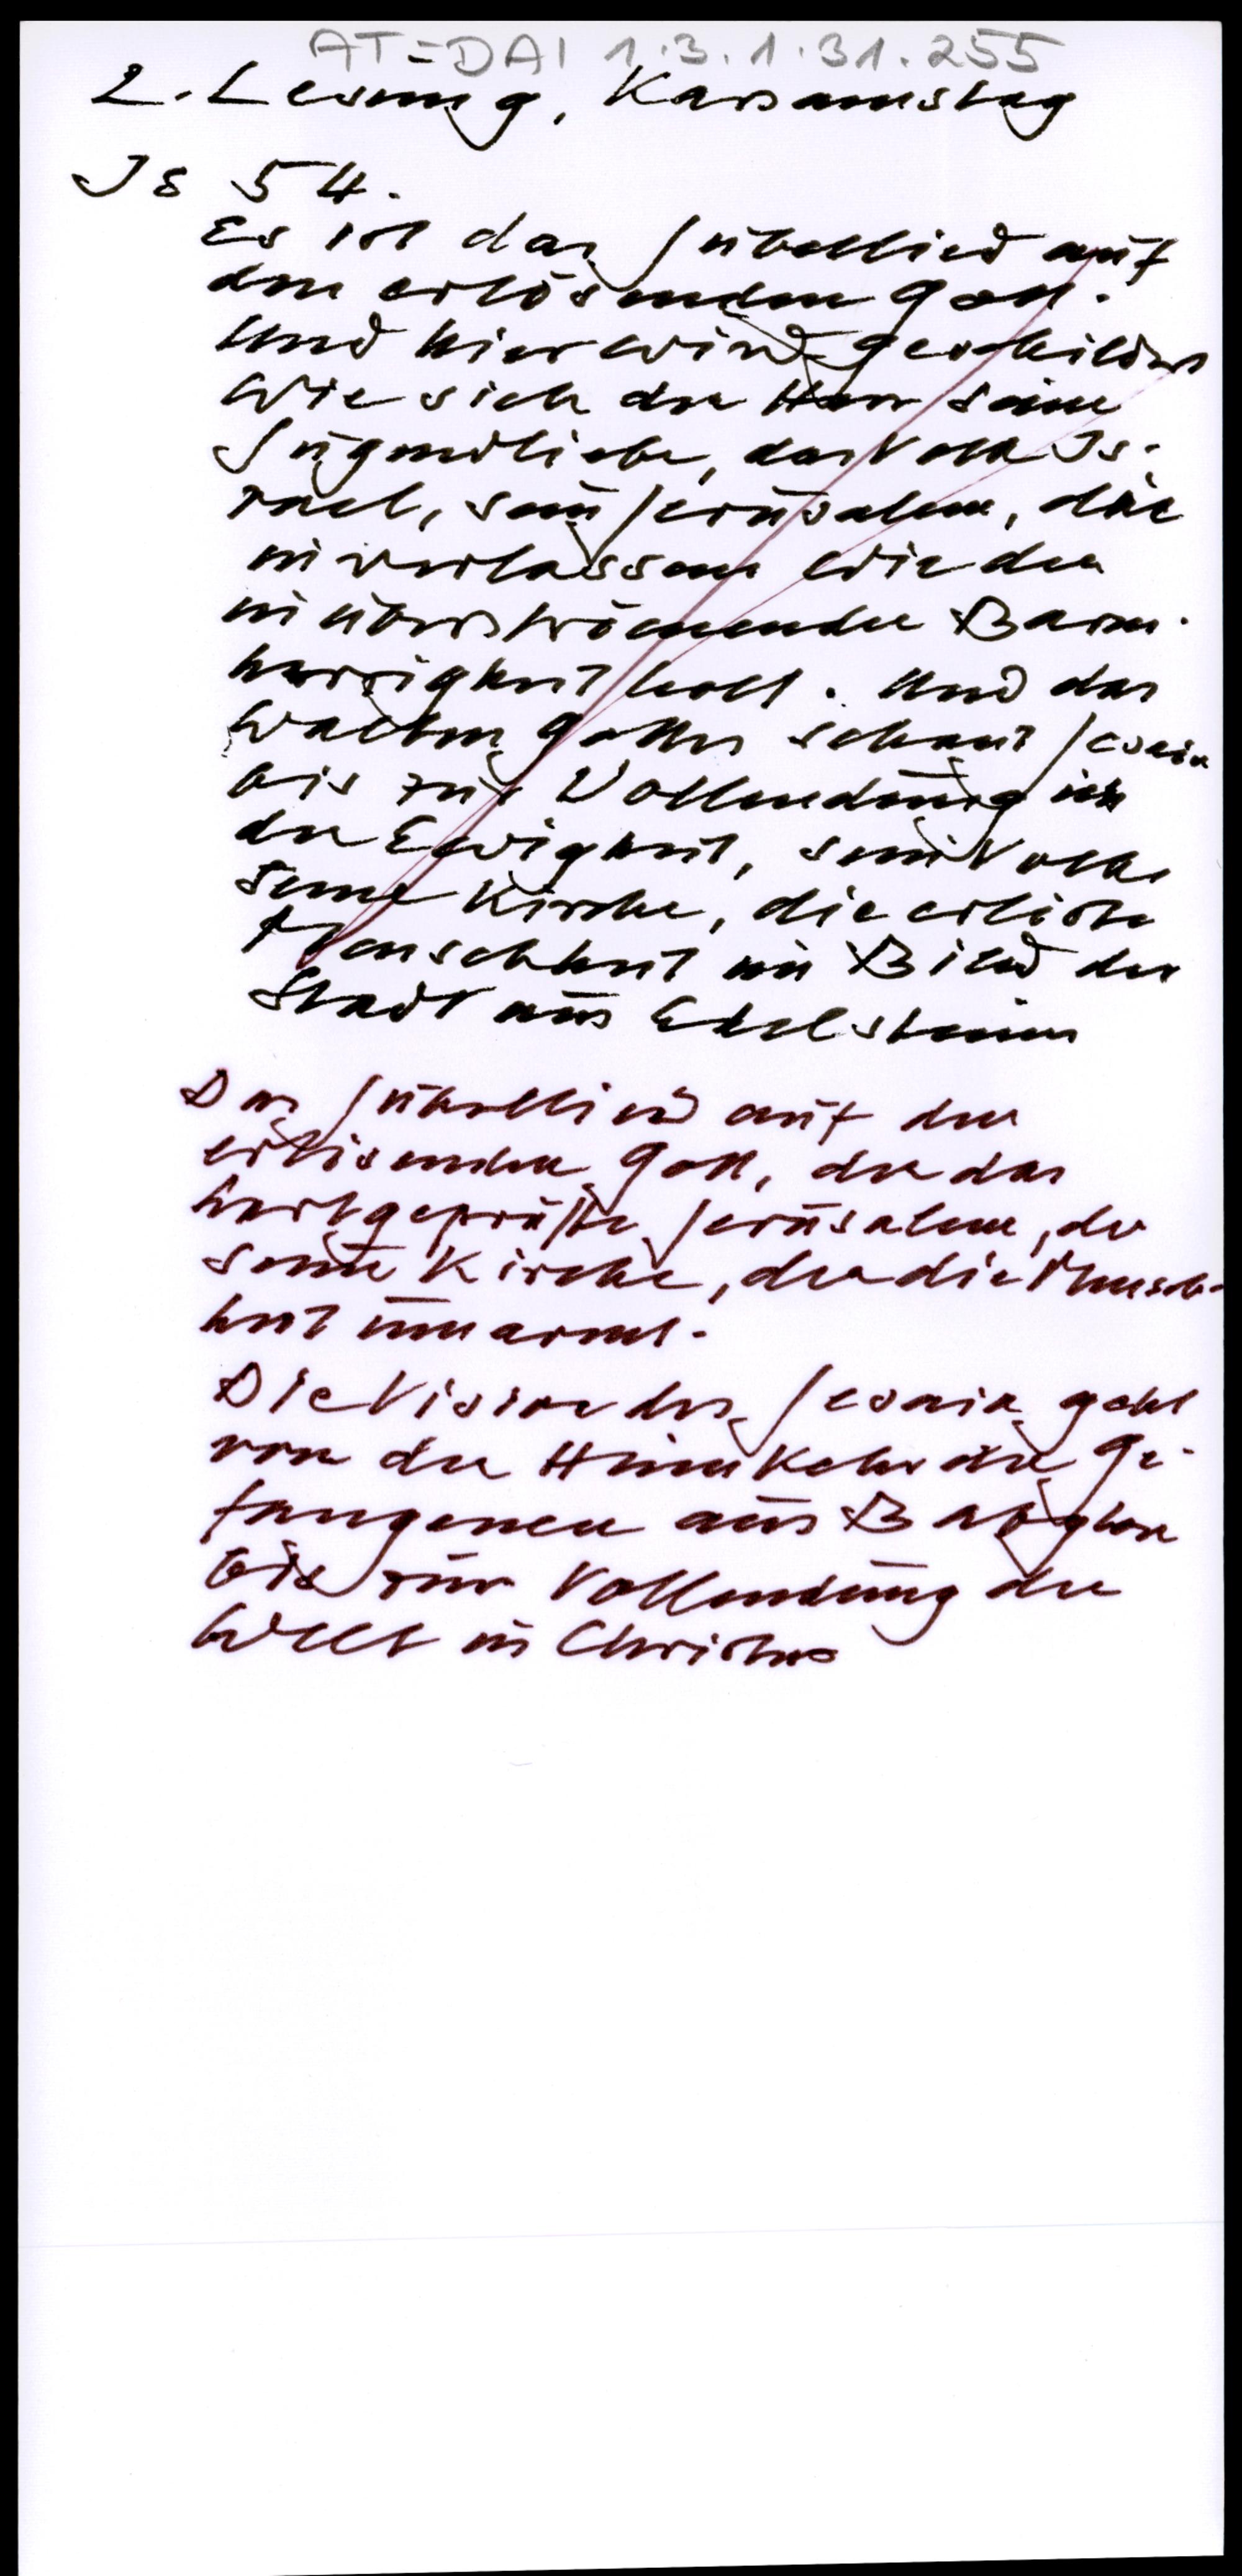 AT-DAI 1.3.1.31.255
2. Lesung, Karsamstag
Is 54.
Es ist das Jubellied auf
den erlösenden Gott.
Und hier wird geschildert
wie sich der Herr seine
Jugendliebe, das Volk Is-
rael, sein Jerusalem, die
verlassene wieder
in überströmender Barm-
herzigkeit holt. Und das
Walten Gottes schaut Jesaia
bis zur Vollendung in
der Ewigkeit, sein Volk,
seine Kirche, die erlöste
Menschheit im Bild der
Stadt aus Edelsteinen
Das Jubellied auf den
erlösenden Gott, der das
hartgeprüfte Jerusalem, der
seine Kirche, der die Mensch-
heit umarmt.
Die Vision des Jesaia geht
von der Heimkehr der Ge-
fangenen aus Babylon
bis zur Vollendung der
Welt in Christus